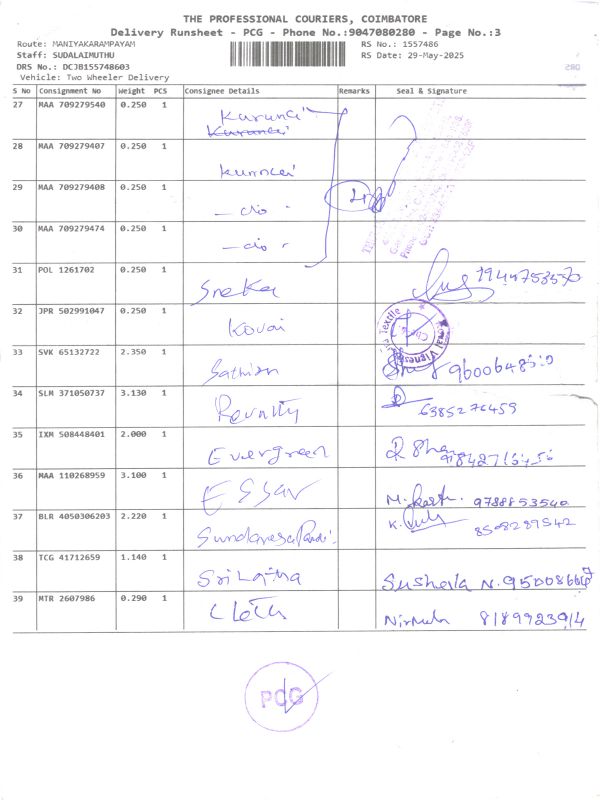 THE PROFESSIONAL COURIERS, COIMBATORE
Delivery Runsheet - PCG - Phone No.:9047080280 - Page No.:3
Route: MANIYAKARAMPAYAM
RS No.: 1557486
Staff: SUDALAIMUTHU
RS Date: 29-May-2025
DRS No.: DCJB155748603
Vehicle: Two Wheeler Delivery
S No Consignment No Weight PCS Consignee Details Remarks Seal & Signature
27 MAA 709279540 0.250 1
28 MAA 709279407 0.250 1
29 MAA 709279408 0.250 1 - do -
30 MAA 709279474 0.250 1 - do -
31 POL 1261702 0.250 1 Sneka
32 JPR 502991047 0.250 1 Kovai
33 SVK 65132722 2.350 1 Sathian
34 SLM 371050737 3.130 1 6385276459
35 IXM 508448401 2.000 1 Evergreen
36 MAA 110268959 3.100 1 ESSAR 9788853540
37 BLR 4050306203 2.220 1 8508289542
38 TCG 41712659 1.140 1 Susheila N.
39 MTR 2607986 0.290 1 Cloth Nirmala 8189923914
PCG